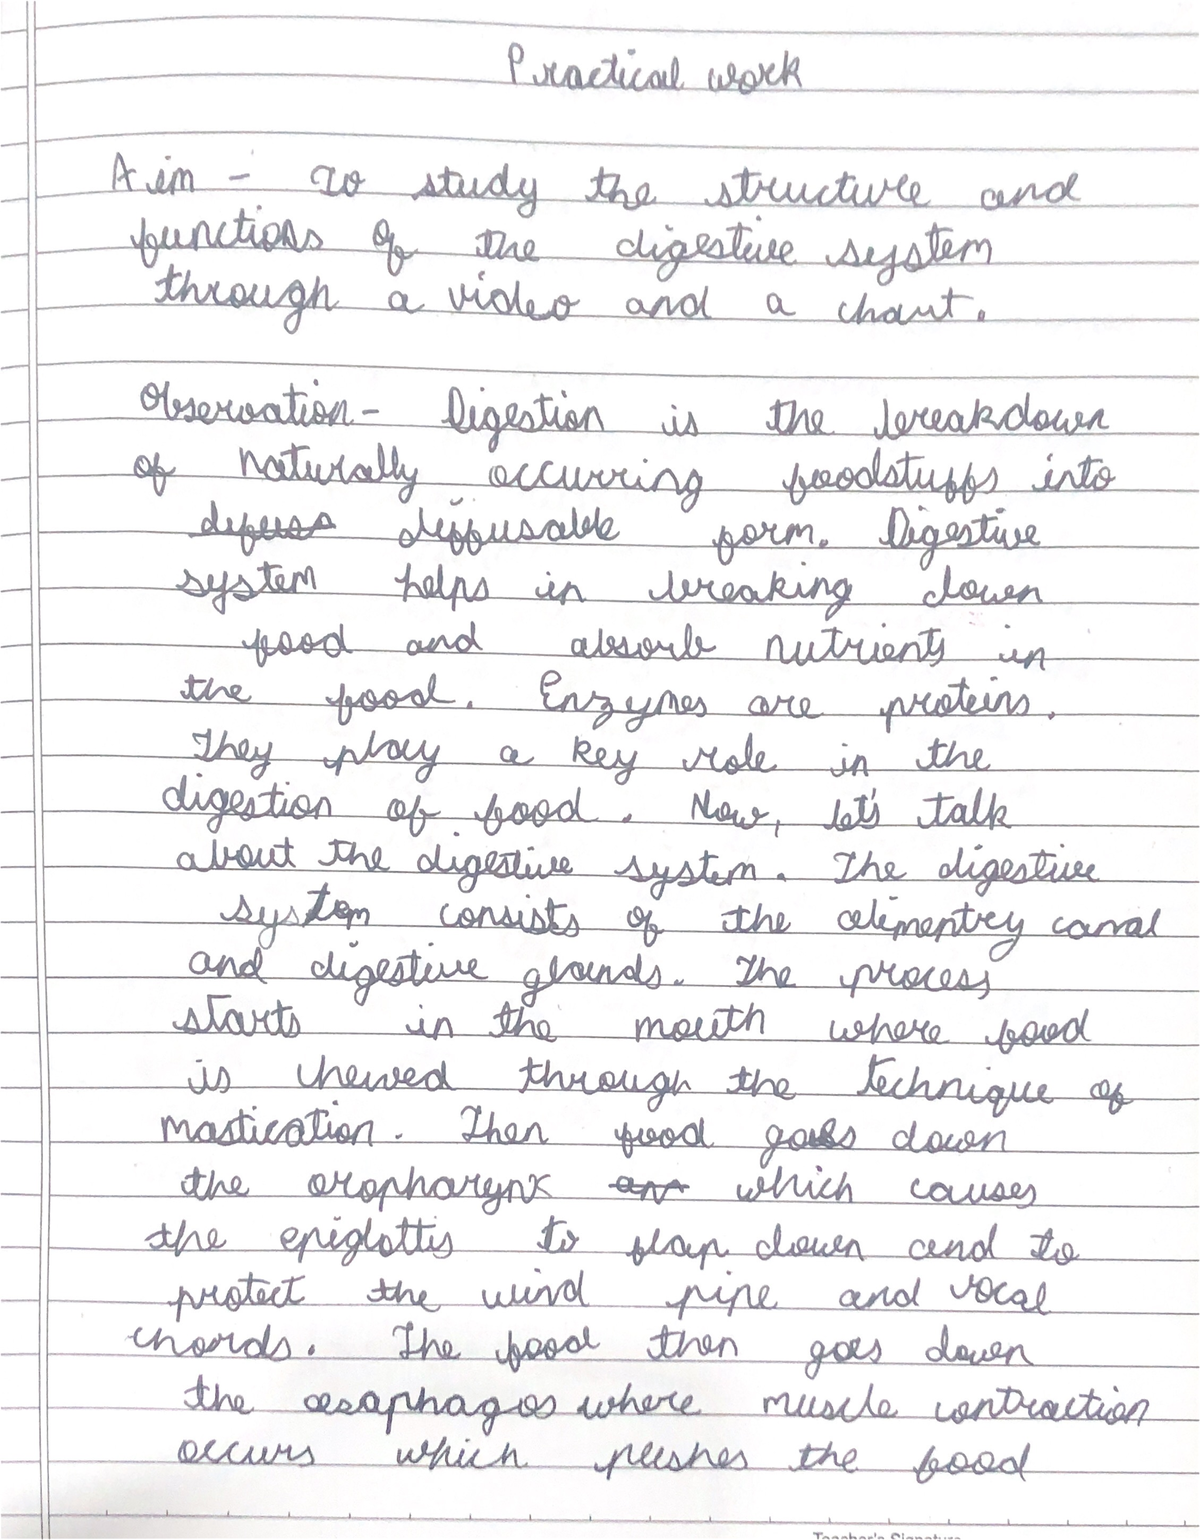 Practical work
Aim - To study the structure and
functions of the digestive system
through a video and a chart.
Observation - Digestion is the breakdown
of naturally occurring foodstuffs into
defuss diffusable form. Digestive
system helps in breaking down
food and absorb nutrients in
the food. Enzymes are proteins.
They play a key role in the
digestion of food. Now, let's talk
about the digestive system. The digestive
system consists of the alimentry canal
and digestive glands. The process
starts in the mouth where food
is chewed through the technique of
mastication. Then food goes down
the oropharynx an which causes
the epiglottis to flap down and to
protect the wind pipe and vocal
chords. The food then goes down
the oesaphagos where muscle contraction
occurs which pushes the food